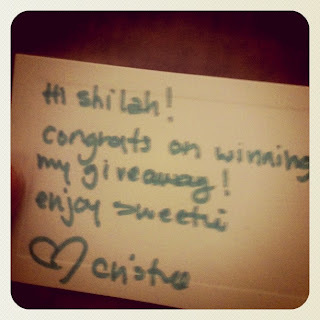 Hi shilah!
congrats on winning
my giveaway!
enjoy sweetie